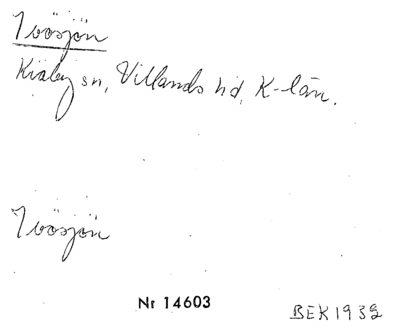 Ivösjön
Kiaby sn, Villands hd, K-län.
Ivösjön
Nr 14603
BEK1932